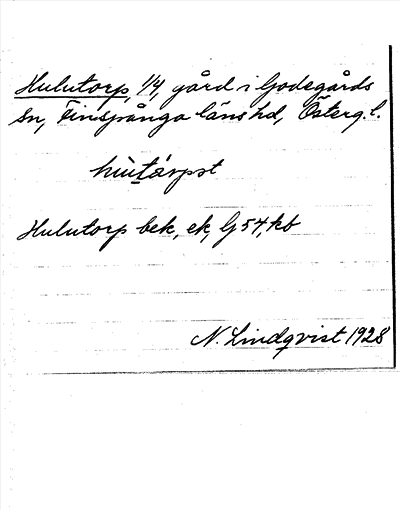 Hulutorp, 1/4, gård i Godegårds
sn, Finspånga läns hd, Österg. l.
hùtárpst
Hulutorp bek, ek, G 54, kb
N. Lindqvist 1928